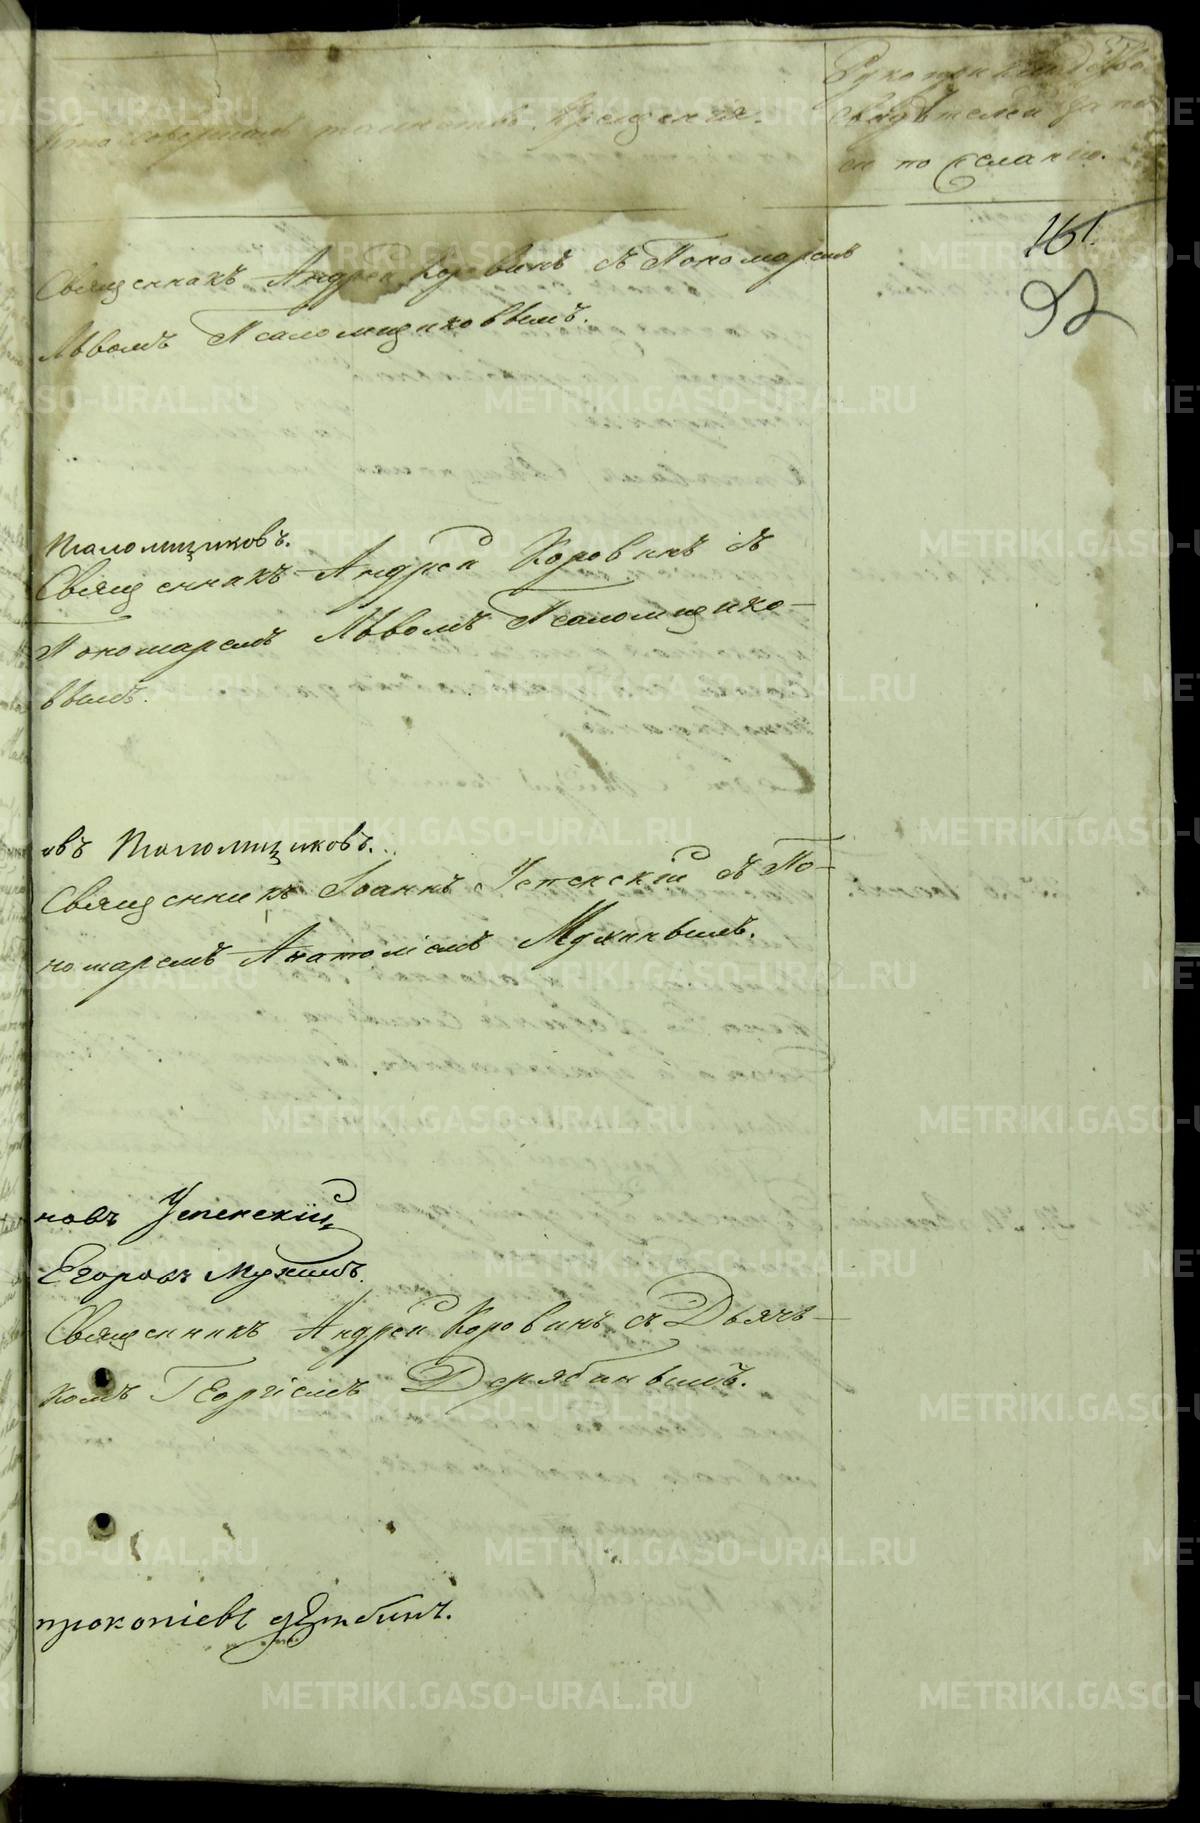 Кто совершалъ таинство Крещенія.
Рукоприкладство
свидѣтелей запи
си по желанію.
161.
92
Священникъ Андрей Коровинъ съ Пономаремъ
Львомъ Псаломщиковымъ.
Псаломщиковъ.
Священникъ Андрей Коровинъ съ
Пономаремъ Львомъ Псаломщико-
вымъ.
овъ Псаломщиковъ.
Священникъ Іоаннъ Успенскій съ По-
номаремъ Анатоліемъ Мухинымъ.
новъ Успенскій,
Егоровъ Мухинъ.
Священникъ Андрей Коровинъ съ Дьяч-
комъ Георгіемъ Дерябинымъ.
прокопіевъ дерябинъ.
METRIKI.GASO-URAL.RU